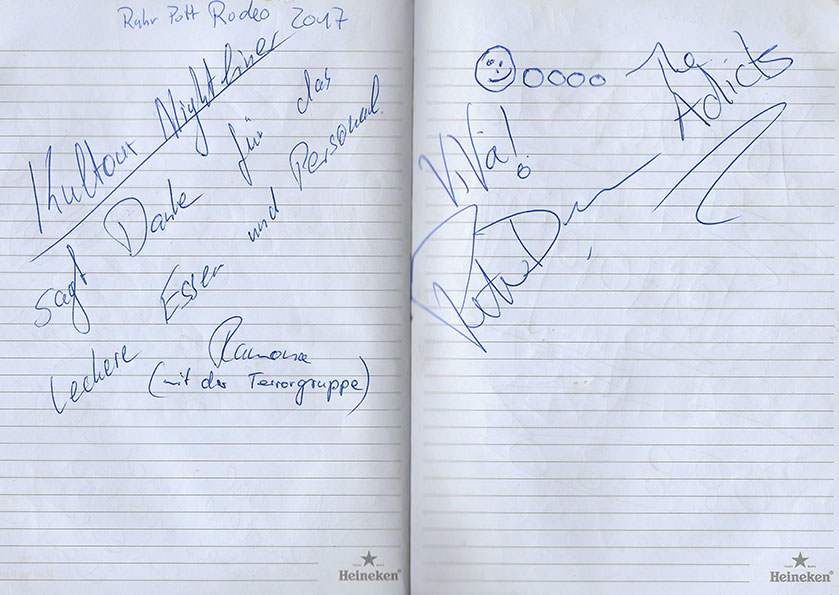 Ruhr Pott Rodeo 2017
Kultour Nightliner
sagt Danke für das
leckere Essen und Personal.
Ramona
(mit der Terrorgruppe)
Heineken
The
Adicts
Viva!
Heineken